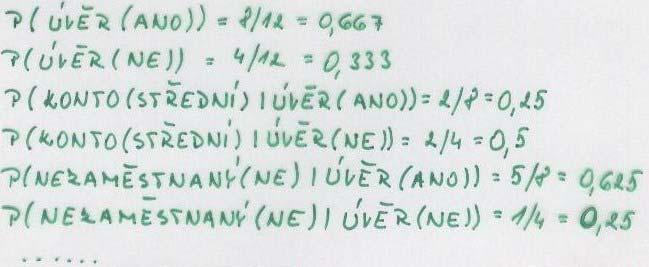 P(ÚVĚR(ANO)) = 8/12 = 0,667
P(ÚVĚR(NE)) = 4/12 = 0,333
P(KONTO(STŘEDNÍ)|ÚVĚR(ANO)) = 2/8 = 0,25
P(KONTO(STŘEDNÍ)|ÚVĚR(NE)) = 2/4 = 0,5
P(NEZAMĚSTNANÝ(NE)|ÚVĚR(ANO)) = 5/8 = 0,625
P(NEZAMĚSTNANÝ(NE)|ÚVĚR(NE)) = 1/4 = 0,25
......